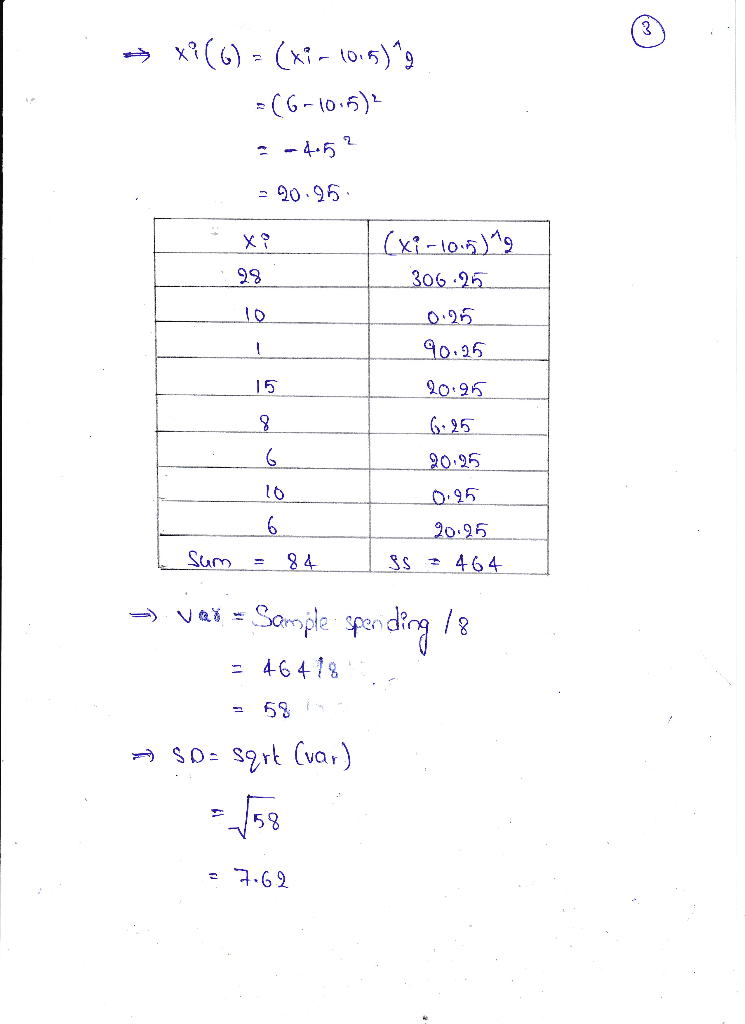 3
⇒ xi(6) = (xi - 10.5)^2
= (6 - 10.5)²
= - 4.5²
= 20.25.
xi (xi - 10.5)^2
28 306.25
10 0.25
1 90.25
15 20.25
8 6.25
6 20.25
10 0.25
6 20.25
Sum = 84 SS = 464
⇒ var = Sample spending /8
= 464/8
= 58
⇒ SD = sqrt (var)
= √58
= 7.62